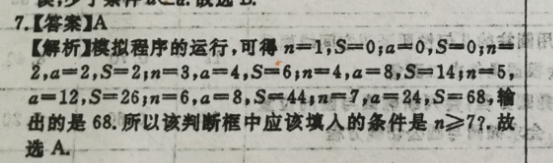 7.【答案】A
【解析】模拟程序的运行,可得n=1,S=0;a=0,S=0;n=
2,a=2,S=2;n=3,a=4,S=6;n=4,a=8,S=14;n=5,
a=12,S=26;n=6,a=8,S=44;n=7,a=24,S=68,输
出的是68.所以该判断框中应该填入的条件是n≥7?.故
选A.